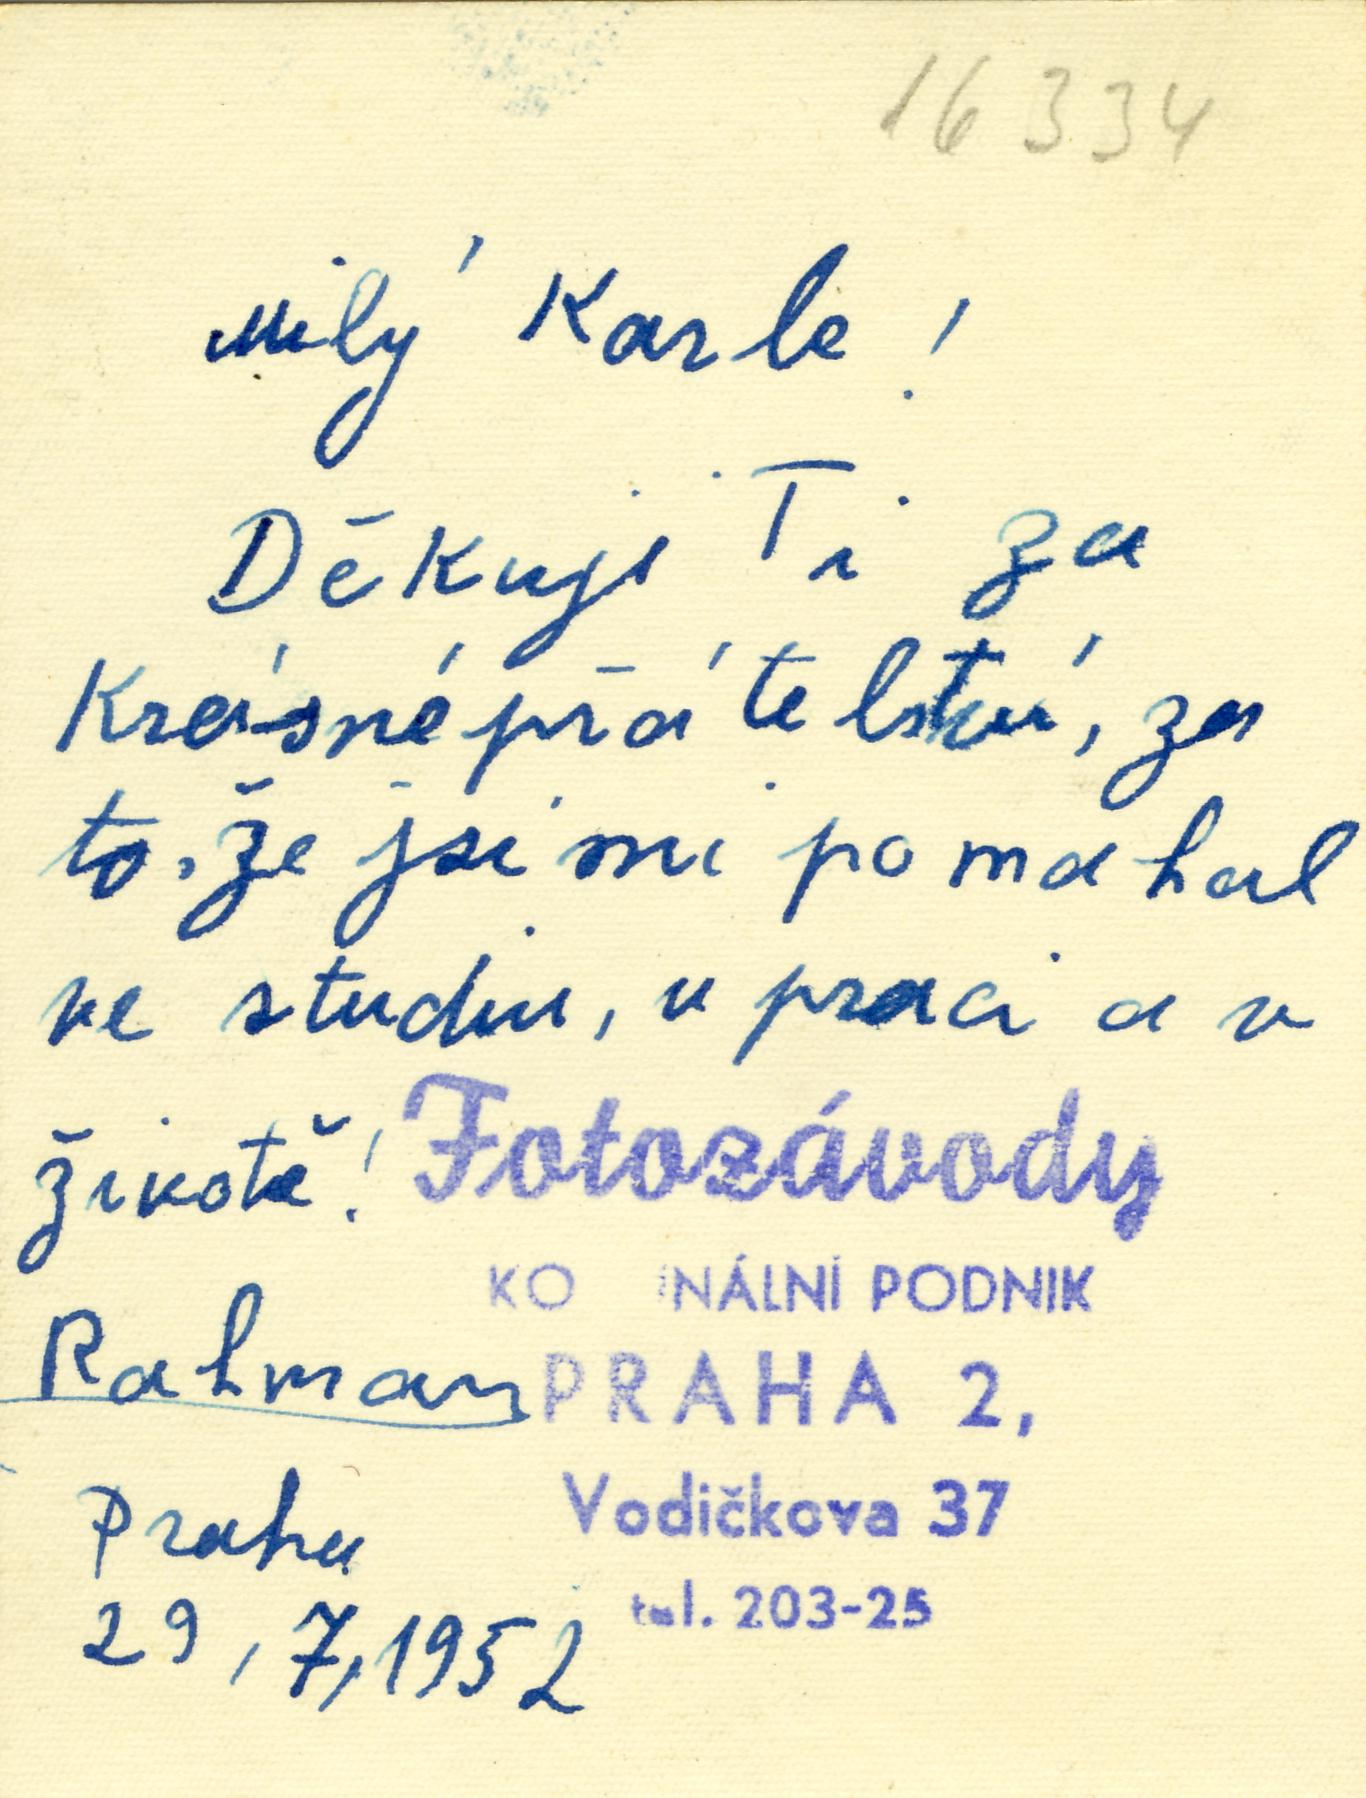 16334
Milý Karle!
Děkuji Ti za
Krásné přátelství, za
to, že jsi mi pomahal
ve studiu, v praci a v
životě!
Fotozávody
KO NÁLNÍ PODNIK
Rahman
PRAHA 2,
Vodičkova 37
Praha
tel. 203-25
29, 7, 1952